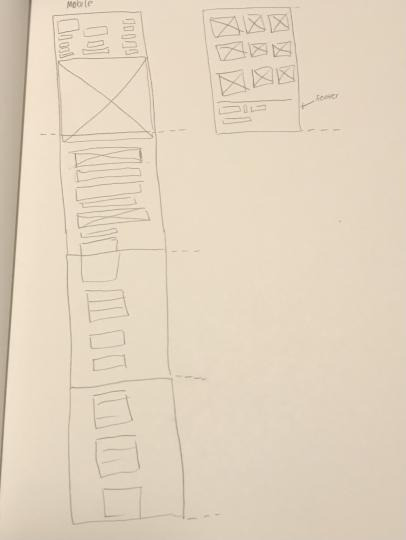 Mobile
Footer